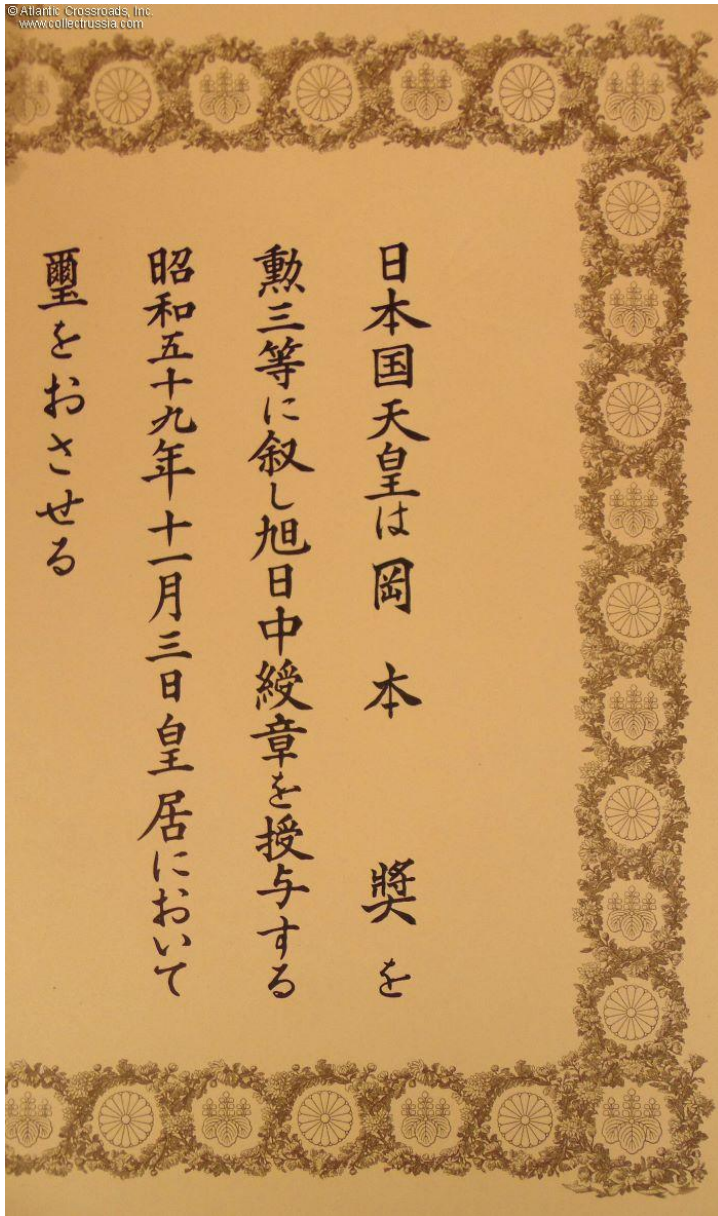 © Atlantic Crossroads, Inc.
www.collectrussia.com
日本国天皇は岡本奨を
勲三等に叙し旭日中綬章を授与する
昭和五十九年十一月三日皇居において
璽をおさせる